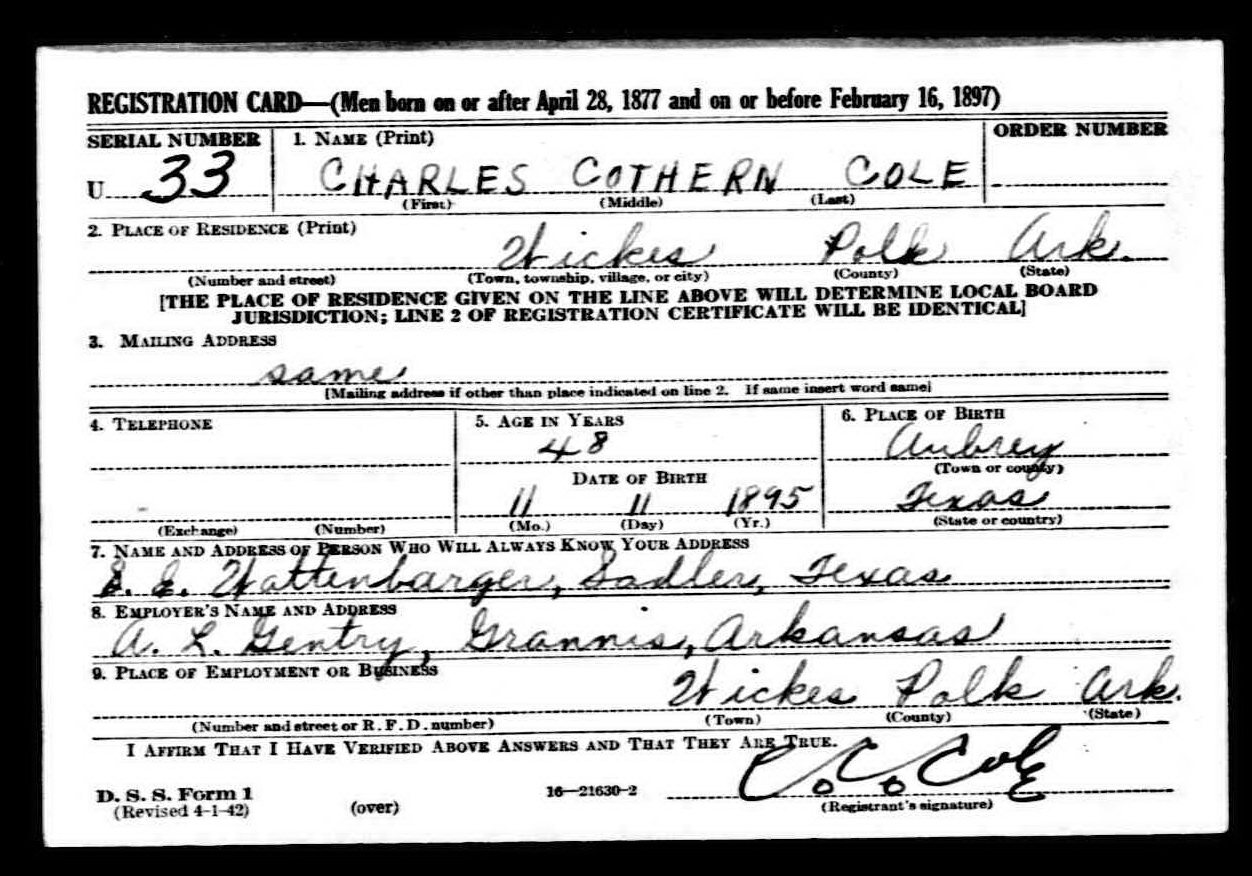 REGISTRATION CARD—(Men born on or after April 28, 1877 and on or before February 16, 1897)
SERIAL NUMBER 1. NAME (Print) ORDER NUMBER
U 33 CHARLES COTHERN COLE
(First) (Middle) (Last)
2. PLACE OF RESIDENCE (Print)
Wickes Polk Ark.
(Number and street) (Town, township, village, or city) (County) (State)
[THE PLACE OF RESIDENCE GIVEN ON THE LINE ABOVE WILL DETERMINE LOCAL BOARD
JURISDICTION; LINE 2 OF REGISTRATION CERTIFICATE WILL BE IDENTICAL]
3. MAILING ADDRESS
same
[Mailing address if other than place indicated on line 2. If same insert word same]
4. TELEPHONE 5. AGE IN YEARS 6. PLACE OF BIRTH
48 Aubrey
(Town or county)
DATE OF BIRTH
11 11 1895 Texas
(Exchange) (Number) (Mo.) (Day) (Yr.) (State or country)
7. NAME AND ADDRESS OF PERSON WHO WILL ALWAYS KNOW YOUR ADDRESS
S. E. Wattenbarger, Sadler, Texas
8. EMPLOYER'S NAME AND ADDRESS
A. L. Gentry, Grannis, Arkansas
9. PLACE OF EMPLOYMENT OR BUSINESS
Wickes Polk Ark.
(Number and street or R. F. D. number) (Town) (County) (State)
I AFFIRM THAT I HAVE VERIFIED ABOVE ANSWERS AND THAT THEY ARE TRUE.
C. C. Cole
D. S. S. Form 1 16—21630-2
(Revised 4-1-42) (over) (Registrant's signature)